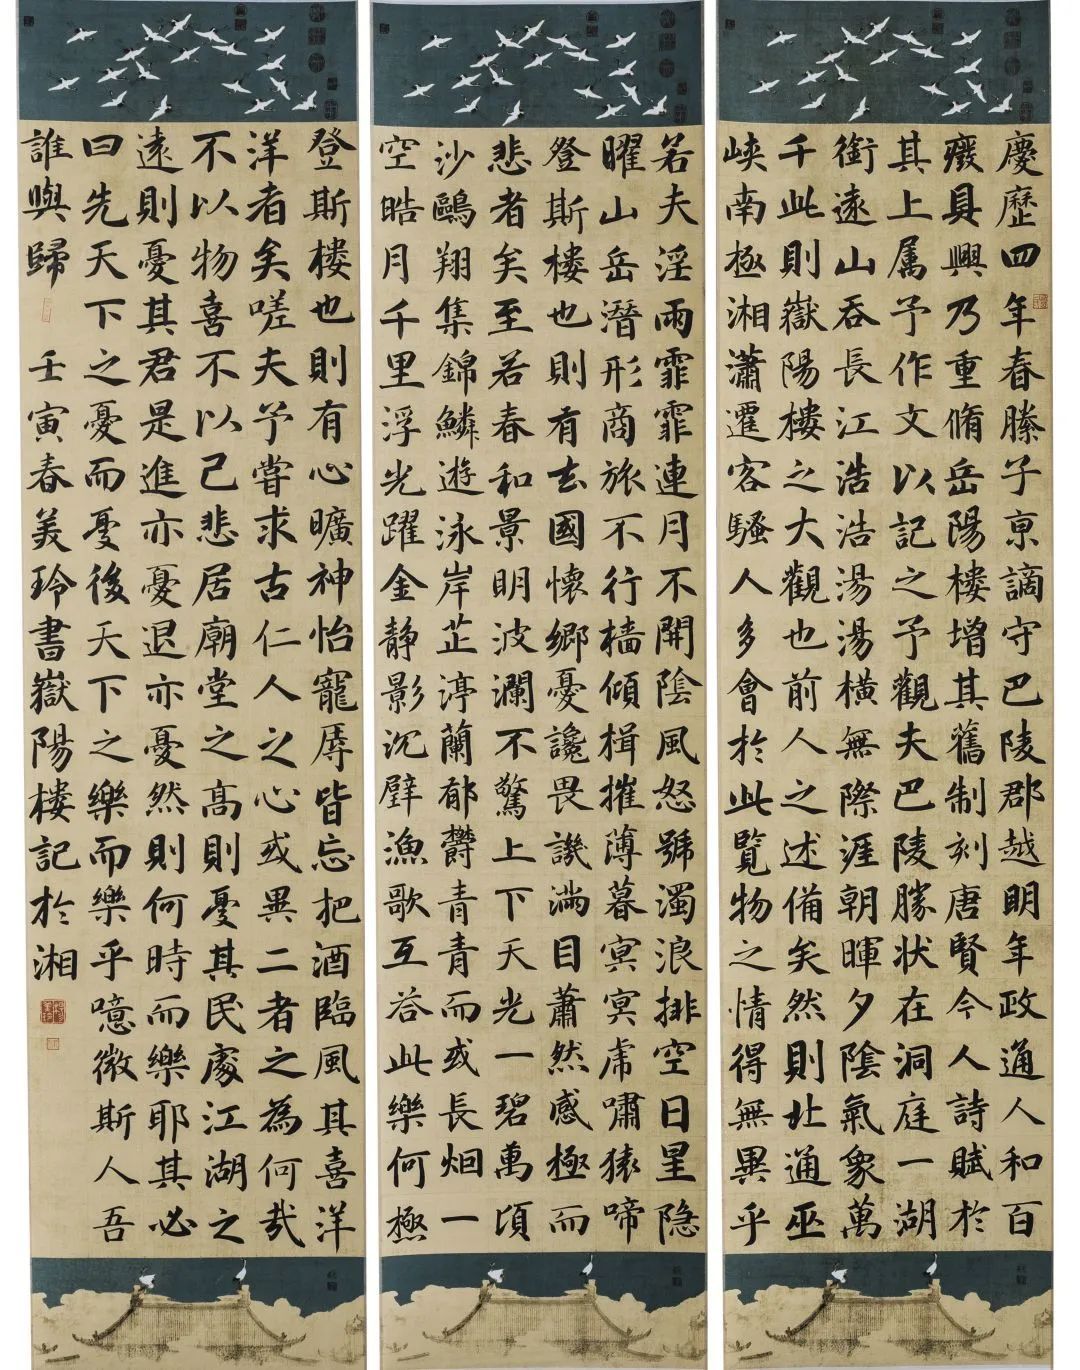 慶歷四年春滕子亰謫守巴陵郡越明年政通人和百
癈具興乃重脩岳陽樓增其舊制刻唐賢今人詩賦於
其上属予作文以記之予觀夫巴陵勝状在洞庭一湖
銜遠山吞長江浩浩湯湯橫無際涯朝暉夕陰氣象萬
千此則嶽陽樓之大觀也前人之述備矣然則北通巫
峽南極湘瀟遷客騷人多會於此覽物之情得無異乎
若夫淫雨霏霏連月不開陰風怒號濁浪排空日星隐
曜山岳潛形商旅不行檣傾楫摧薄暮冥冥虎嘯猿啼
登斯樓也則有去國懷鄉憂讒畏譏滿目蕭然感極而
悲者矣至若春和景明波瀾不驚上下天光一碧萬頃
沙鷗翔集錦鱗遊泳岸芷渟蘭郁欝青青而或長烟一
空皓月千里浮光躍金静影沉璧漁歌互答此樂何極
登斯樓也則有心曠神怡寵辱皆忘把酒臨風其喜洋
洋者矣嗟夫予嘗求古仁人之心或異二者之為何哉
不以物喜不以己悲居廟堂之高則憂其民處江湖之
遠則憂其君是進亦憂退亦憂然則何時而樂耶其必
曰先天下之憂而憂後天下之樂而樂乎噫微斯人吾
誰與歸 壬寅春美玲書嶽陽樓記於湘